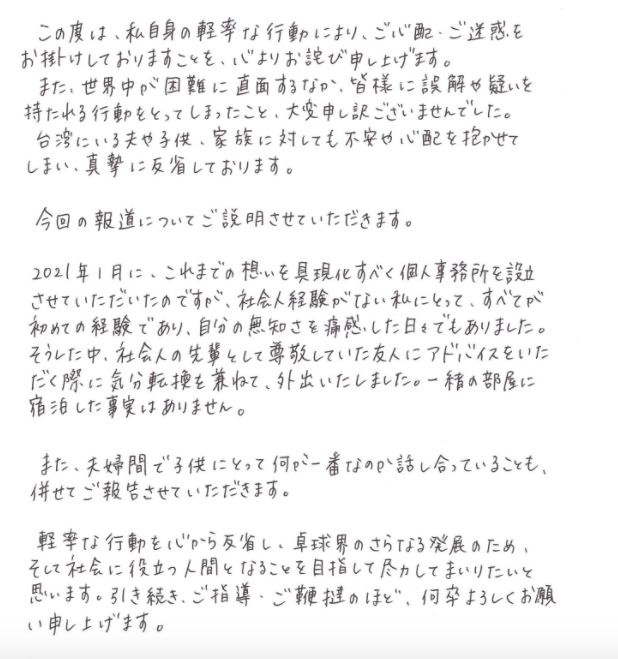 この度は、私自身の軽率な行動により、ご心配・ご迷惑を
お掛けしておりますことを、心よりお詫び申し上げます。
また、世界中が困難に直面するなか、皆様に誤解や疑いを
持たれる行動をとってしまったこと、大変申し訳ございませんでした。
台湾にいる夫や子供、家族に対しても不安や心配を抱かせて
しまい、真摯に反省しております。
今回の報道についてご説明させていただきます。
2021年1月に、これまでの想いを具現化すべく個人事務所を設立
させていただいたのですが、社会人経験がない私にとって、すべてが
初めての経験であり、自分の無知さを痛感した日々でもありました。
そうした中、社会人の先輩として尊敬していた友人にアドバイスをいた
だく際に気分転換を兼ねて、外出いたしました。一緒の部屋に
宿泊した事実はありません。
また、夫婦間で子供にとって何が一番なのか話し合っていることも、
併せてご報告させていただきます。
軽率な行動を心から反省し、卓球界のさらなる発展のため、
そして社会に役立つ人間となることを目指して尽力してまいりたいと
思います。引き続き、ご指導・ご鞭撻のほど、何卒よろしくお願
い申し上げます。